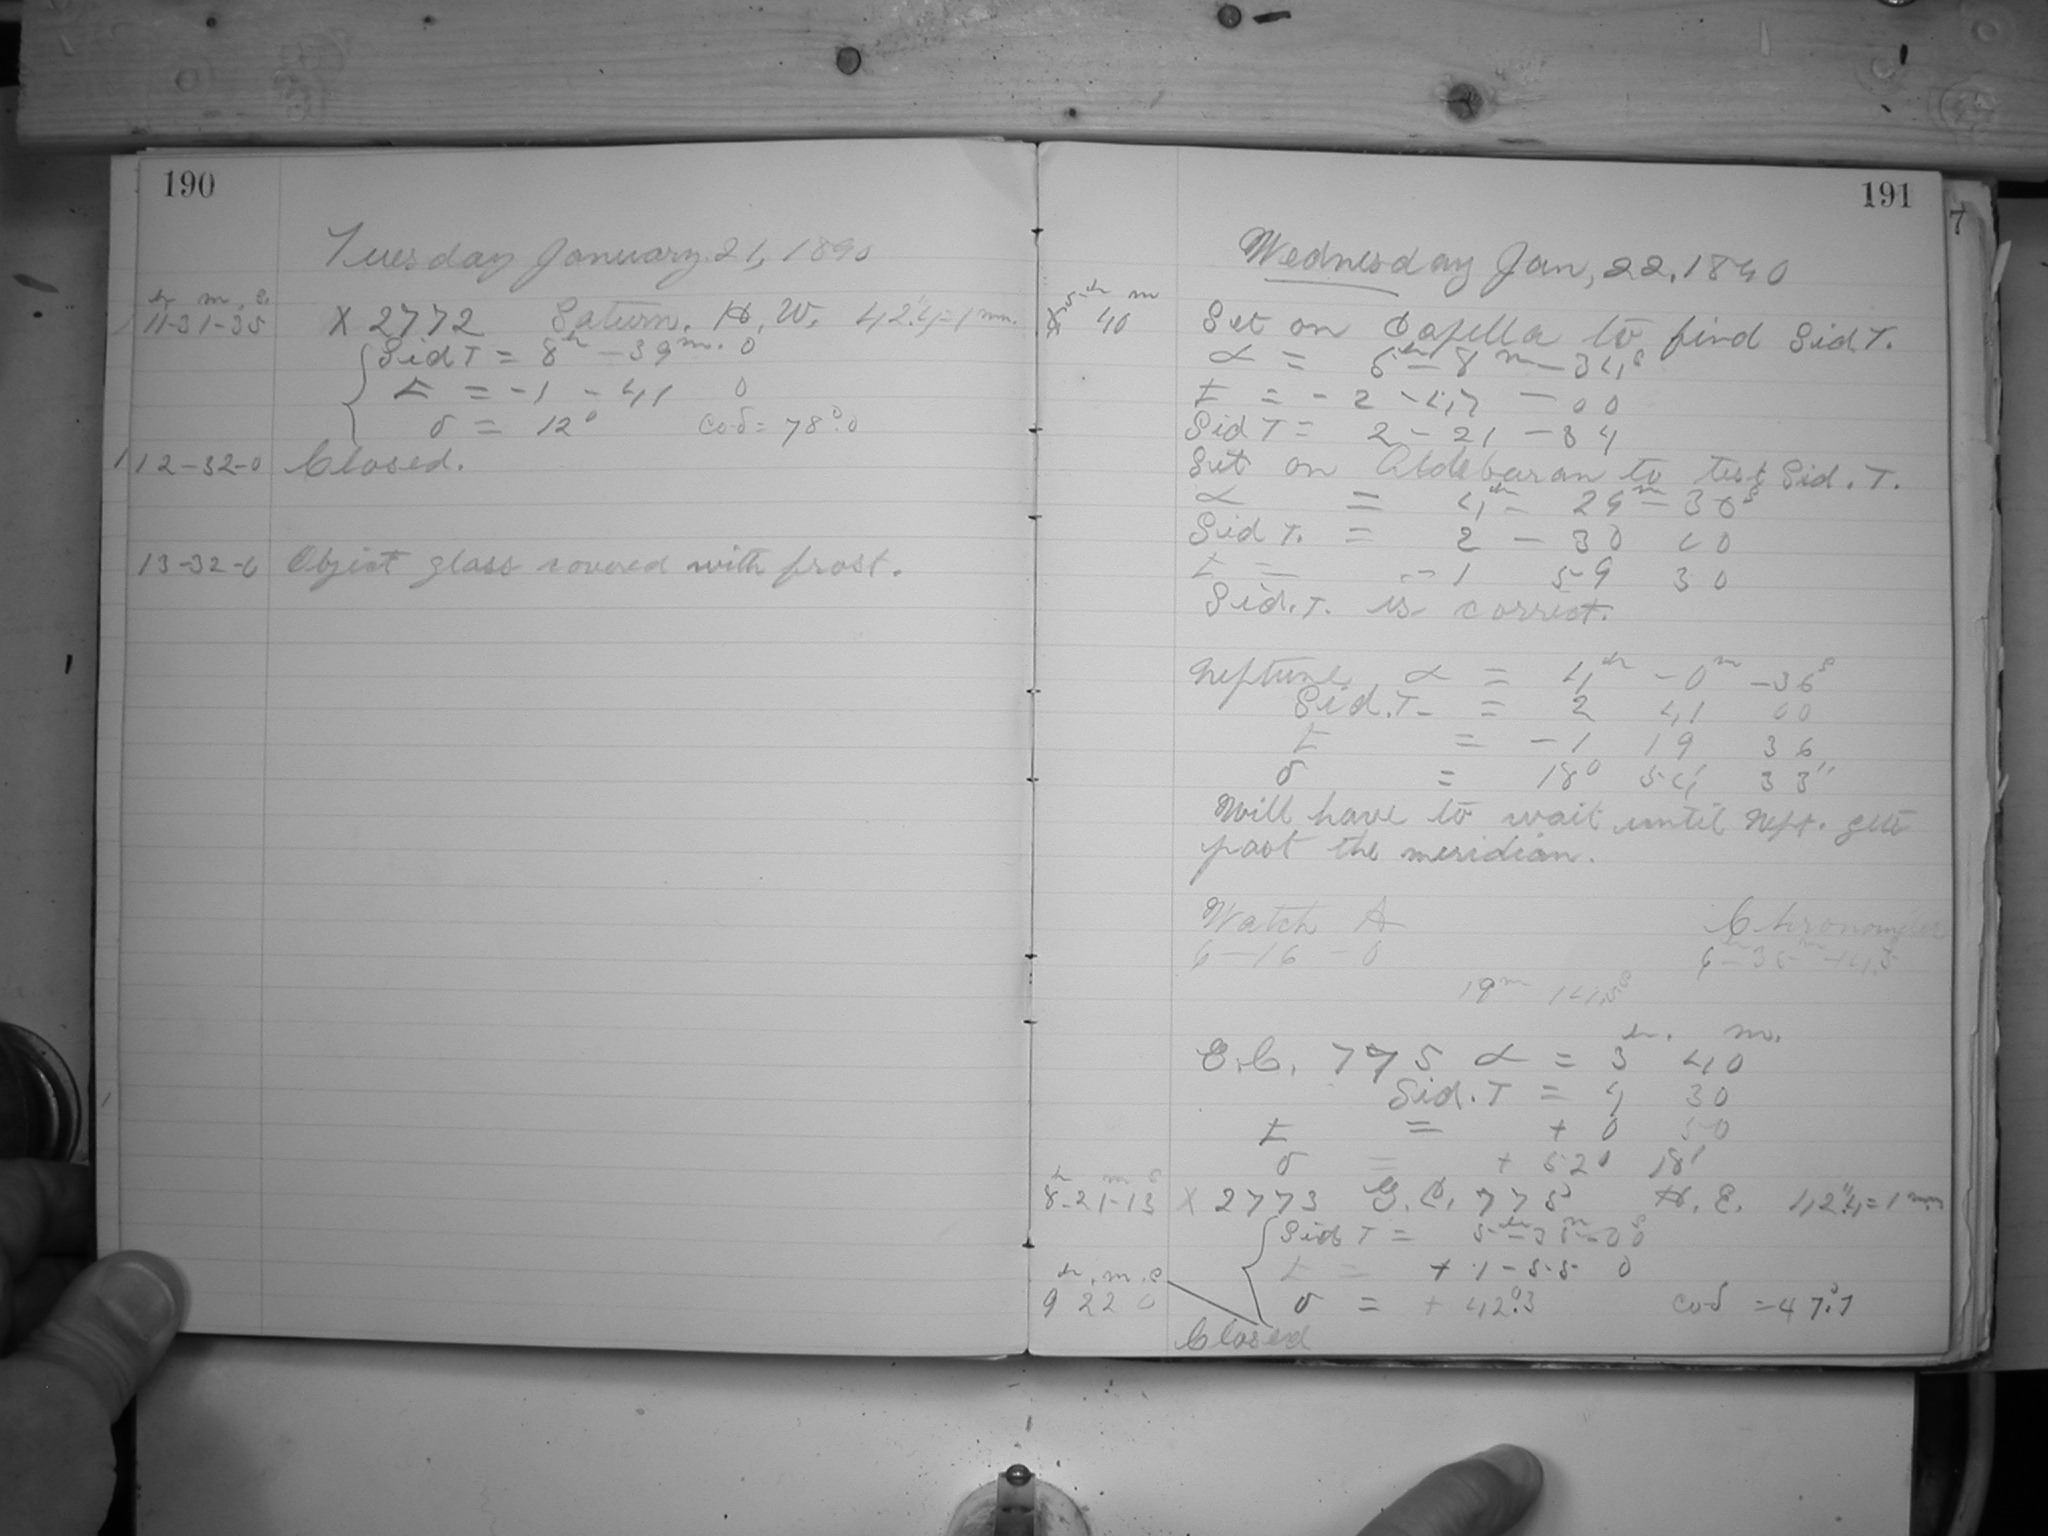 190
Tuesday January 21, 1890
h m s
11-31-35 X 2772 Saturn. H. W. 42".4=1 mm.
Sid T = 8h - 39m. 0
t = -1 - 41 0
δ = 12° co-δ = 78°.0
12-32-0 Closed.
13-32-0 Object glass covered with frost.
191
7
Wednesday Jan, 22, 1890
5h m
40 Set on Capella to find Sid T.
α = 5h - 8m - 34s
t = - 2 - 47 - 00
Sid T = 2 - 21 - 34
Set on Aldebaran to test Sid. T.
α = 4h - 29m - 30s
Sid T. = 2 - 30 00
t = - 1 59 30
Sid. T. is correct.
Neptune α = 4h - 0m - 36s
Sid. T. = 2 41 00
t = - 1 19 36
δ = 18° 54' 33"
Will have to wait until Nept. gets
past the meridian.
Watch A Chronometer
6-16-0 6h-35m-14.5
19m 14.5s
h. m.
G.C. 775 α = 3 40
Sid. T = 4 30
t = + 0 50
δ = + 52° 18'
h m s
8-21-13 X 2773 G.C. 775 H. E. 42".4=1 mm
Sid T = 5h-35m-00s
t = + 1-55 0
h. m. s
9 22 0 δ = + 42°.3 co-δ = 47°.7
Closed